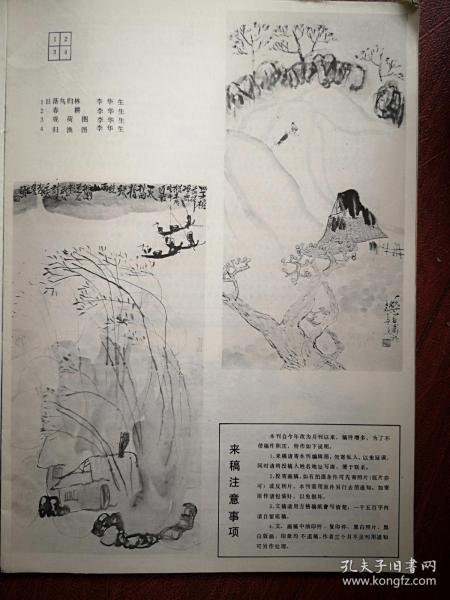 1 2
3 4
1 日落鸟归林 李华生
2 春耕 李华生
3 观荷图 李华生
4 归渔图 李华生
来稿注意事项
本刊自今年改为月刊以来，稿件增多，为了不
使稿件积压，特作如下说明。
1.来稿请寄本刊编辑部，勿寄私人，以免延误，
同时请将投稿人姓名地址写清，便于联系。
2.投寄画稿，如有拍摄条件可先寄照片（底片亦
可）或反转片，本刊需用原作另行去信通知。如寄
原作请包装好，以免损坏。
3.文稿请用方格稿纸誊写清楚，一千五百字内
请自留底稿。
4.文、画稿中油印件、复印件、黑白照片、黑
白版画，印章均不退稿。作者三个月不见刊用通知
可另作处理。
孔夫子旧书网
www.kongfz.com